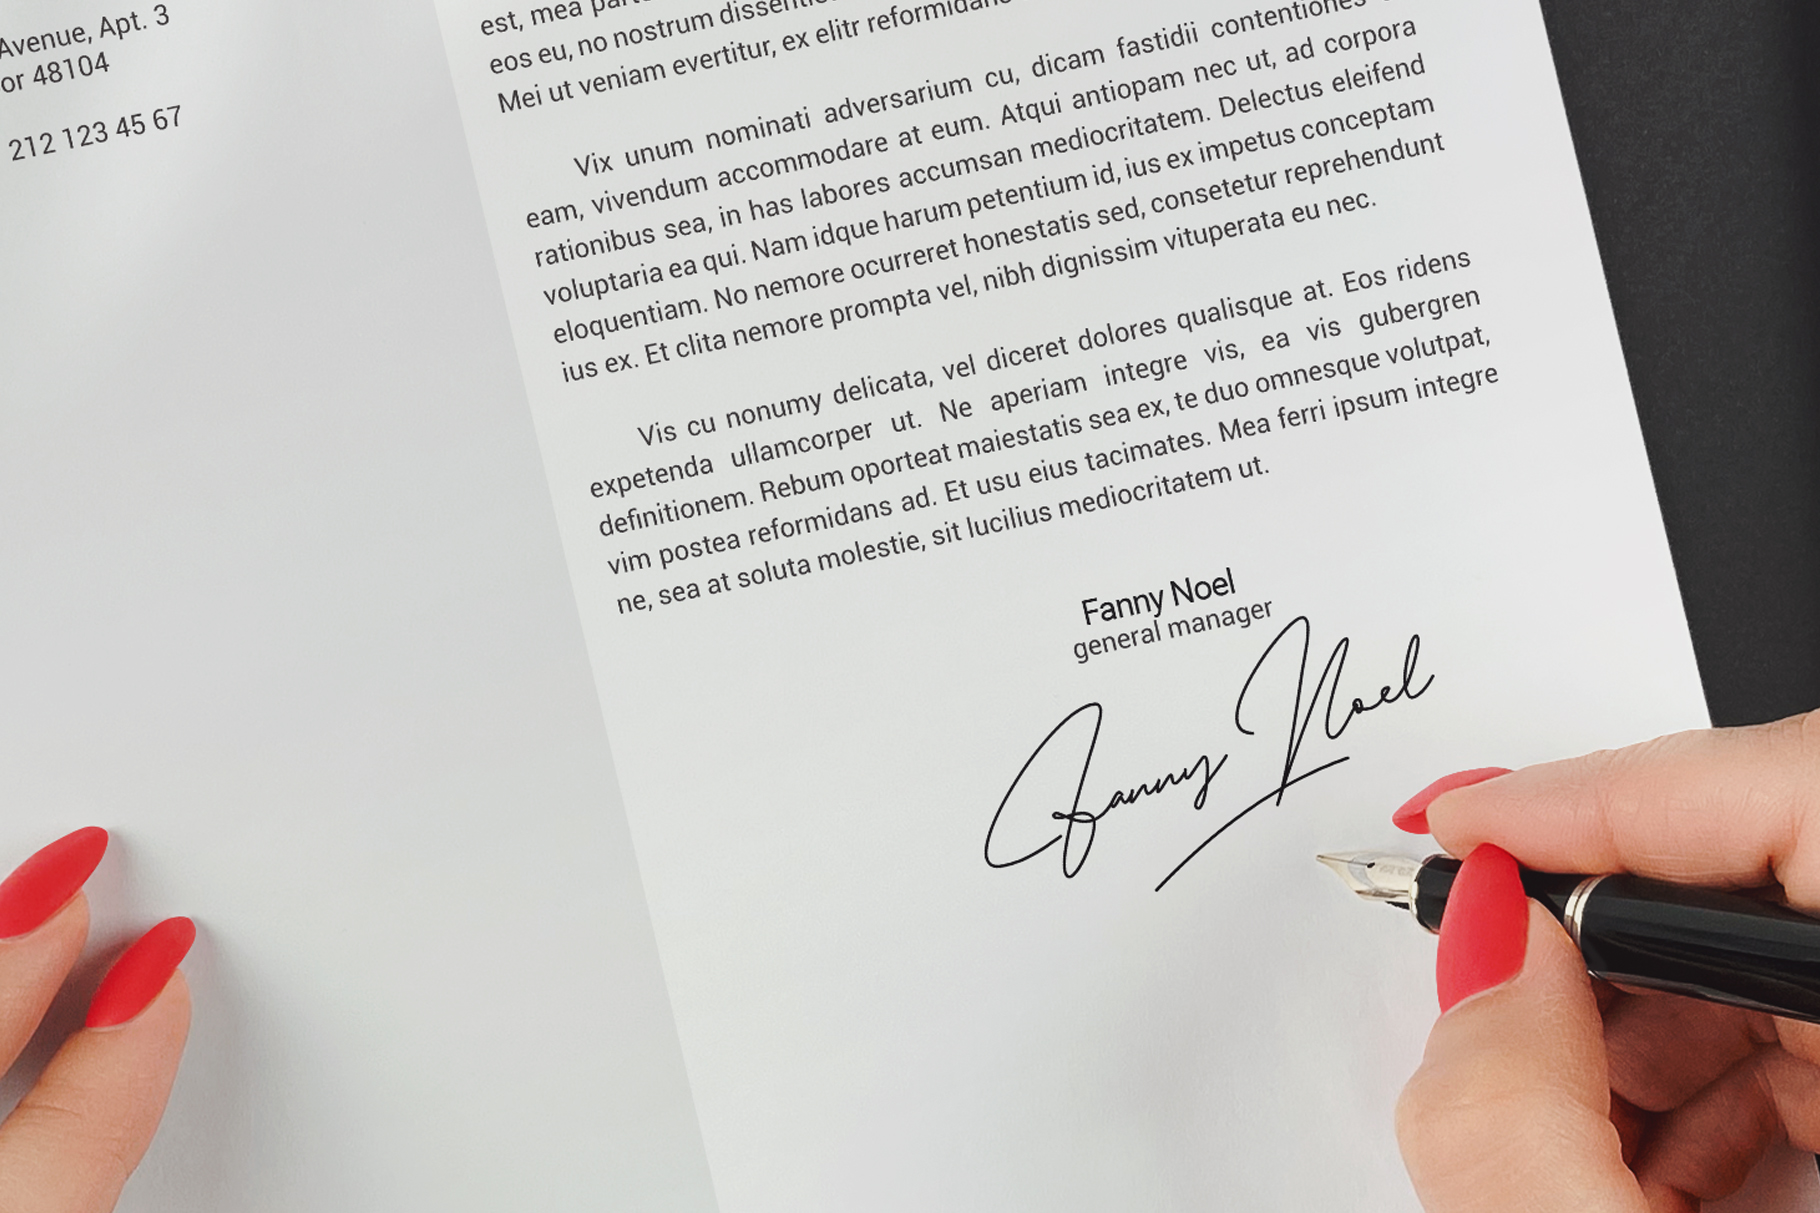 Avenue, Apt. 3
or 48104
212 123 45 67
est, mea
eos eu, no nostrum
Mei ut veniam evertitur, ex elitr reformidans
Vix unum nominati adversarium cu, dicam fastidii contentiones
eam, vivendum accommodare at eum. Atqui antiopam nec ut, ad corpora
rationibus sea, in has labores accumsan mediocritatem. Delectus eleifend
voluptaria ea qui. Nam idque harum petentium id, ius ex impetus conceptam
eloquentiam. No nemore ocurreret honestatis sed, consetetur reprehendunt
ius ex. Et clita nemore prompta vel, nibh dignissim vituperata eu nec.
Vis cu nonumy delicata, vel diceret dolores qualisque at. Eos ridens
expetenda ullamcorper ut. Ne aperiam integre vis, ea vis gubergren
definitionem. Rebum oporteat maiestatis sea ex, te duo omnesque volutpat,
vim postea reformidans ad. Et usu eius tacimates. Mea ferri ipsum integre
ne, sea at soluta molestie, sit lucilius mediocritatem ut.
Fanny Noel
general manager
Fanny Noel